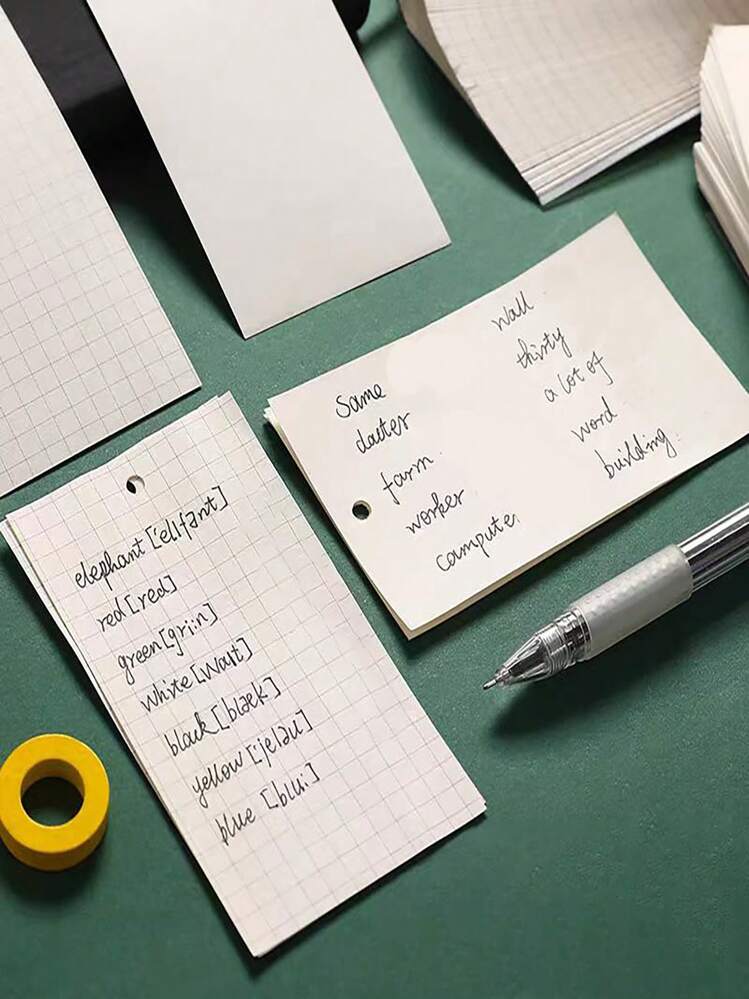 elephant [elIfənt]
red [red]
green [gri:n]
white [waIt]
black [blæk]
yellow ['jeləu]
blue [blu:]
Same
farm
worker
compute.
Wall
thirty
a lot of
word
building.